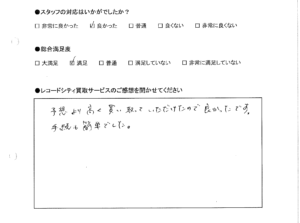 ●スタッフの対応はいかがでしたか?
□非常に良かった ☑良かった □普通 □良くない □非常に良くない
●総合満足度
□大満足 ☑満足 □普通 □満足していない □非常に満足していない
●レコードシティ買取サービスのご感想を聞かせてください
予想より高く買い取っていただけたので良かったです。
手続も簡単でした。